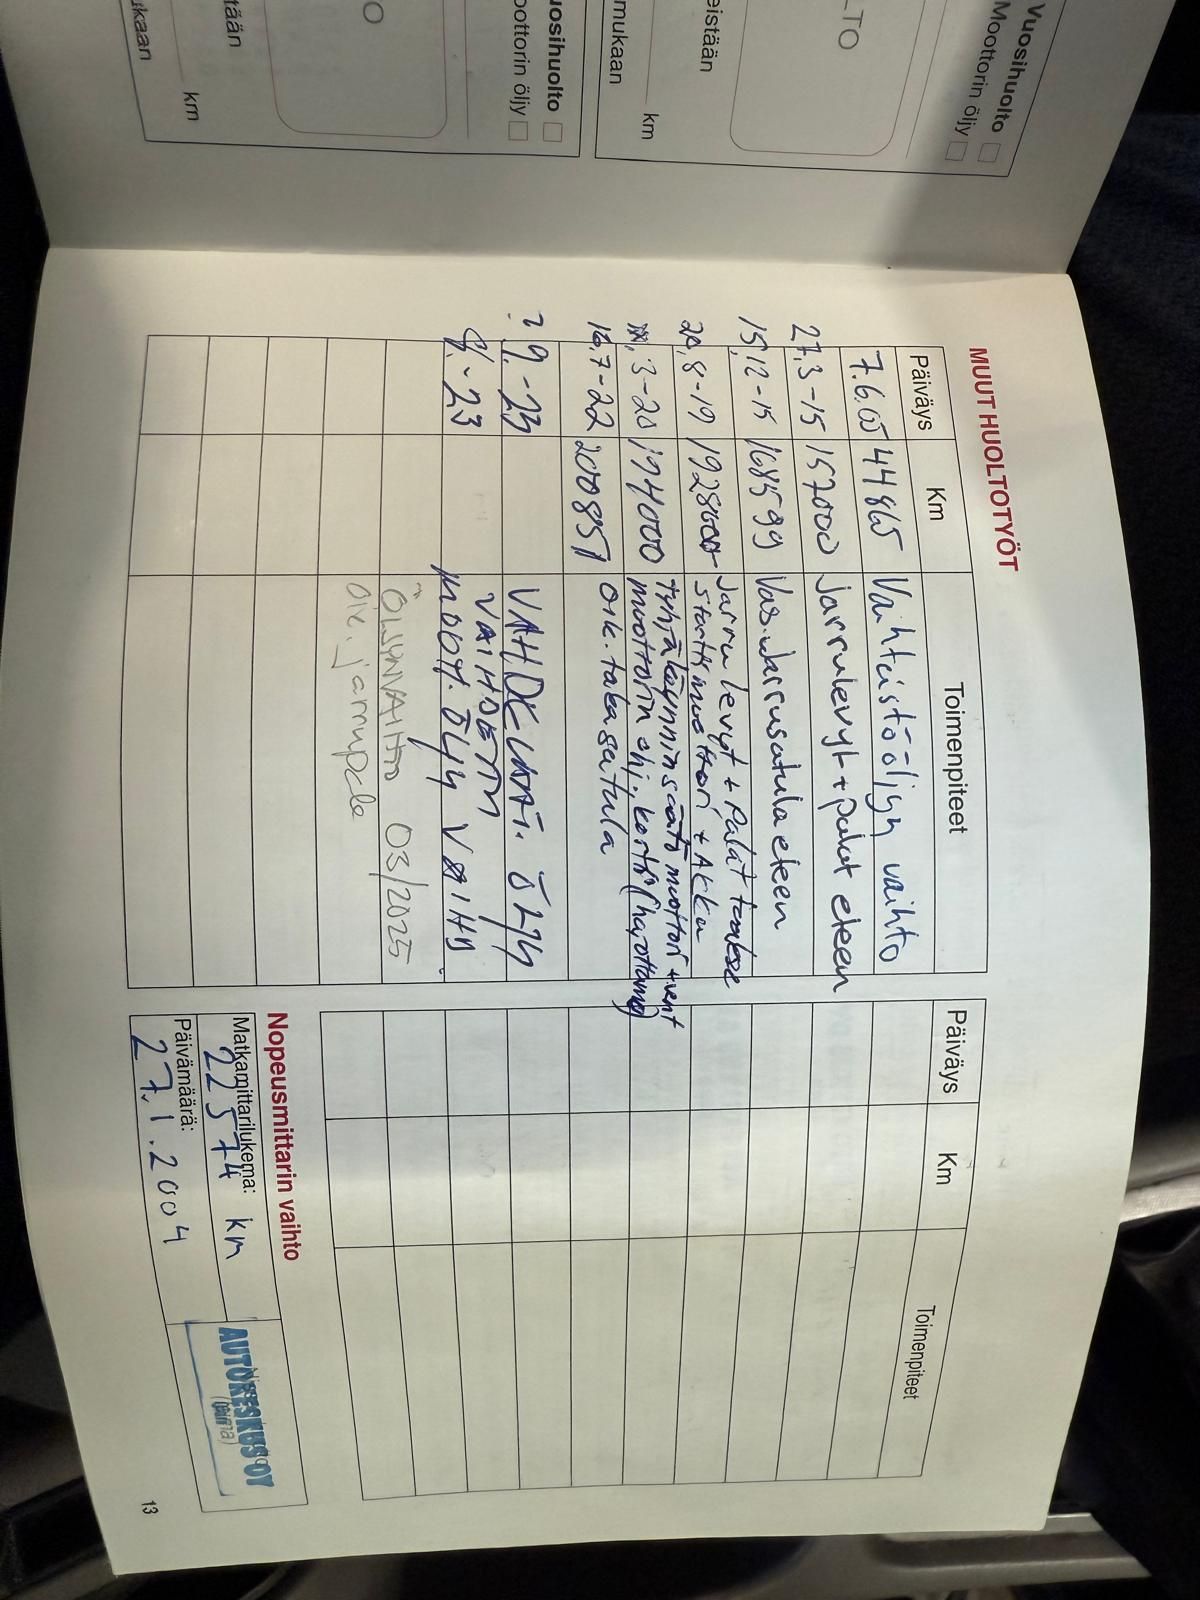 Vuosihuolto
Moottorin öljy
LTO
eistään
mukaan
km
uosihuolto
oottorin öljy
O
tään
ukaan
km
MUUT HUOLTOTYÖT
Päiväys Km Toimenpiteet
7.6.05 44865 Vaihteistoöljyn vaihto
27.3-15 157000 Jarrulevyt + palat eteen
15.12-15 168599 Vas. Jarrusatula eteen
20.8-19 Jarrulevyt + Palat taakse
Starttimoottori + Akku
3-20 194000 tyhjäkäynninsäätömoottori + vent
moottorin ohj. kortti
16.7-22 200851 oik. takasatula
? 9.-23 ÖLJY
VAIHDETTU
-23 MOOT. ÖLJY VAIHD.
ÖLJYNVAIHTO 03/2025
oik. jarrupala
Päiväys Km Toimenpiteet
Nopeusmittarin vaihto
Matkamittarilukema:
22574 km
Päivämäärä:
27.1.2004
AUTOKESKUS OY
13